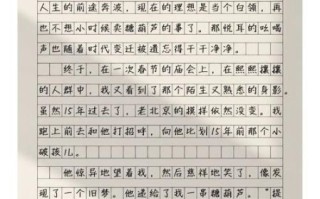 人生的前途奔波,现在的理想是当个白领,再
也不想小时候卖糖葫芦的事了。那悦耳的吆喝
声也随着时代变迁被遗忘得干干净净。
终于,在一次春节的庙会上,在熙熙攘攘
的人群中,我又看到了那个陌生又熟悉的身影。
虽然15年过去了,老北京的模样依然没变。我
跑上前去和他打招呼,向他比划15年前那个小
破孩儿。
他惊异地望着我,然后慈祥地笑了,像发
现了一个旧梦。他递给了我一串糖葫芦。“提